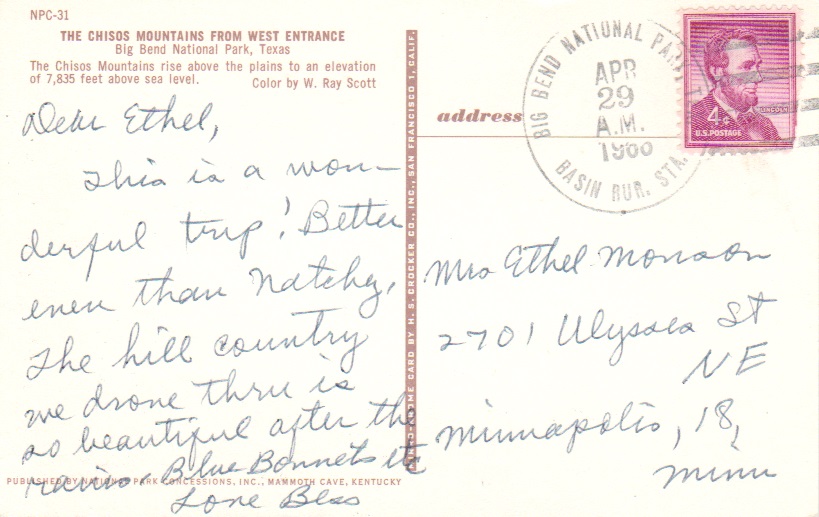 NPC-31
THE CHISOS MOUNTAINS FROM WEST ENTRANCE
Big Bend National Park, Texas
The Chisos Mountains rise above the plains to an elevation
of 7,835 feet above sea level. Color by W. Ray Scott
Dear Ethel,
This is a won-
derful trip! Better
even than Natchez,
The hill country
we drove thru is
so beautiful after the
rains. Blue Bonnets etc
Love Bess
PUBLISHED BY NATIONAL PARK CONCESSIONS, INC., MAMMOTH CAVE, KENTUCKY
-CHROME CARD BY H. S. CROCKER CO., INC., SAN FRANCISCO 1, CALIF.
address
BIG BEND NATIONAL PARK
APR
29
A.M.
BASIN RUR. STA.
LINCOLN
4¢
U.S. POSTAGE
Mrs Ethel Monson
2701 Ulysses St
NE
Minneapolis, 18,
Minn